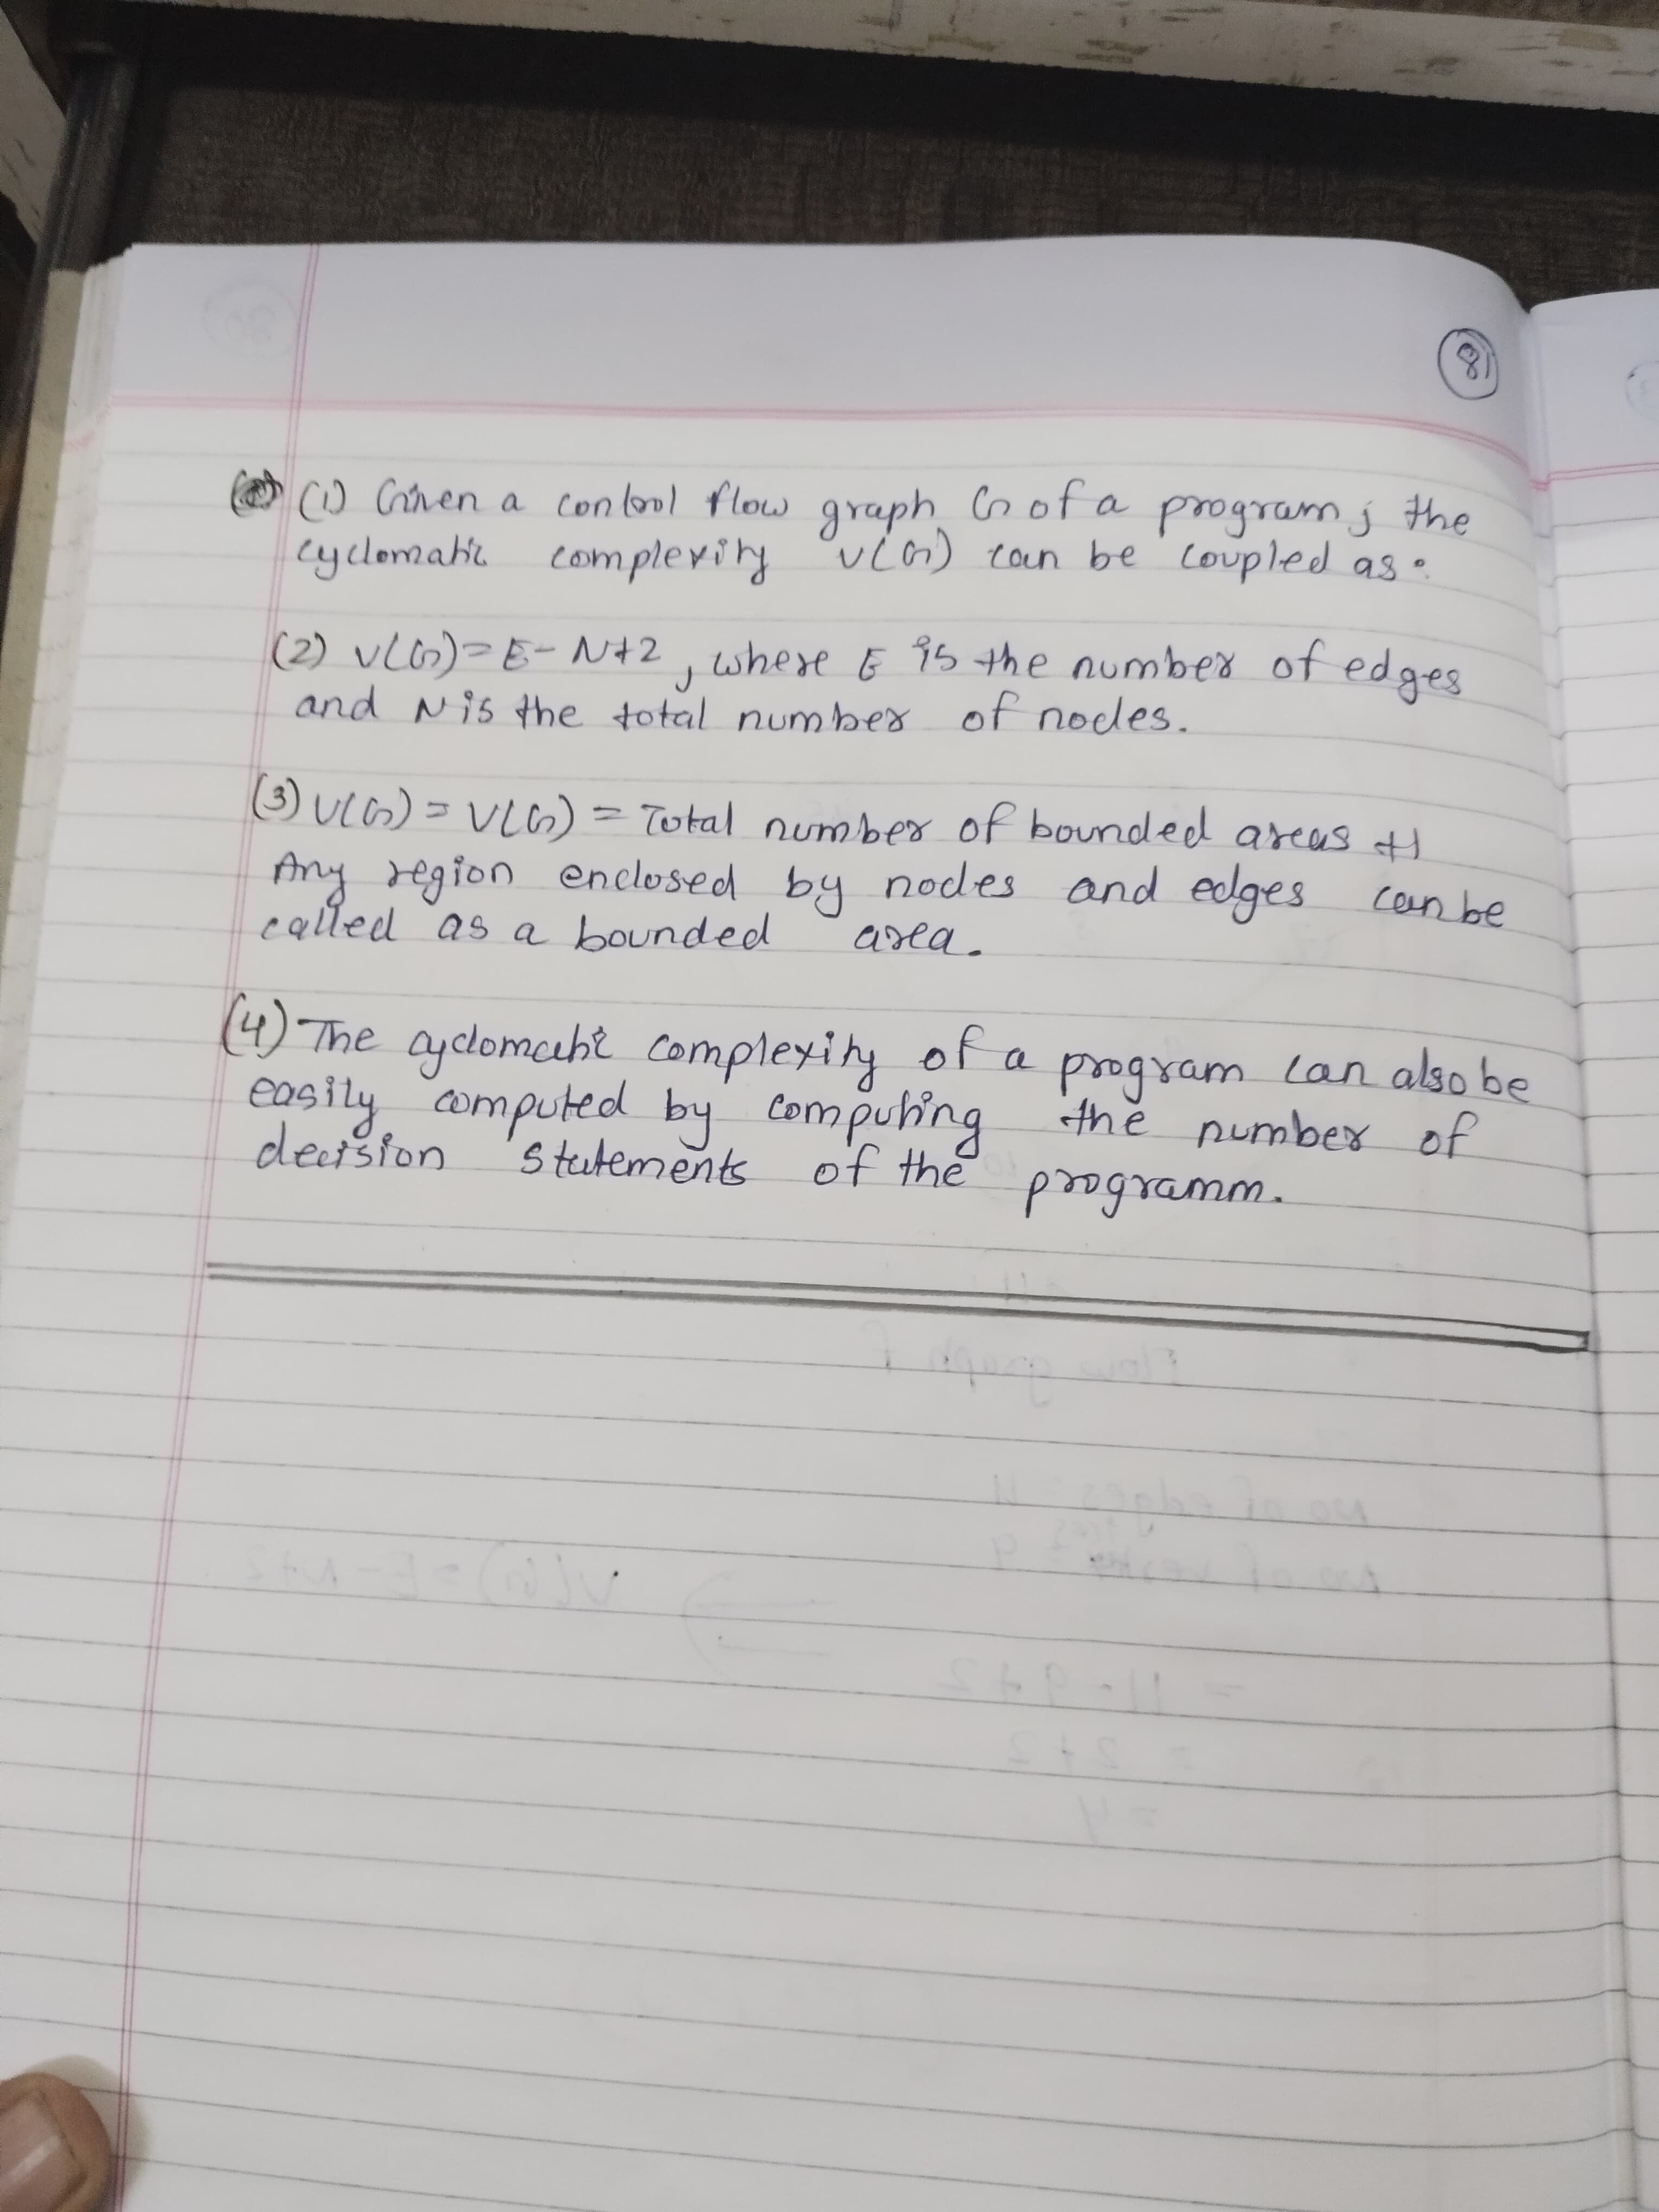 81
(1) Given a control flow graph G of a program; the
cyclomatic complexity V(G) can be coupled as:
(2) V(G)=E-N+2, where E is the number of edges
and N is the total number of nodes.
(3) V(G) = V(G) = Total number of bounded areas +1
Any region enclosed by nodes and edges can be
called as a bounded area.
(4) The cyclomatic complexity of a program can also be
easily computed by computing the number of
decision statements of the programm.